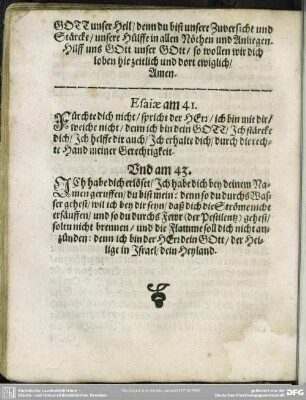 GOTT unser Heil/ denn du bist unsere Zuversicht und
Stärcke/ unsere Hülffe in allen Nöthen und Anliegen.
Hilff uns GOtt unser GOtt/ so wollen wir dich
loben hie zeitlich und dort ewiglich/
Amen.
Esaiæ am 41.
Fürchte dich nicht/ spricht der HErr/ ich bin mit dir/
weiche nicht/ denn ich bin dein GOTT/ Ich stärcke
dich/ Ich helffe dir auch/ Ich erhalte dich/ durch die rech-
te Hand meiner Gerechtigkeit.
Vnd am 43.
ICh habe dich erlöset/ Ich habe dich bey deinem Na-
men geruffen/ du bist mein: denn so du durchs Was-
ser gehest/ wil ich bey dir seyn/ daß dich die Ströme nicht
ersäuffen/ und so du durchs Fewr (der Pestilentz) gehest/
solen nicht brennen/ und die Flamme soll dich nicht an-
zünden: denn ich bin der HErr dein GOtt/ der Hei-
lige in Israel/ dein Heyland.